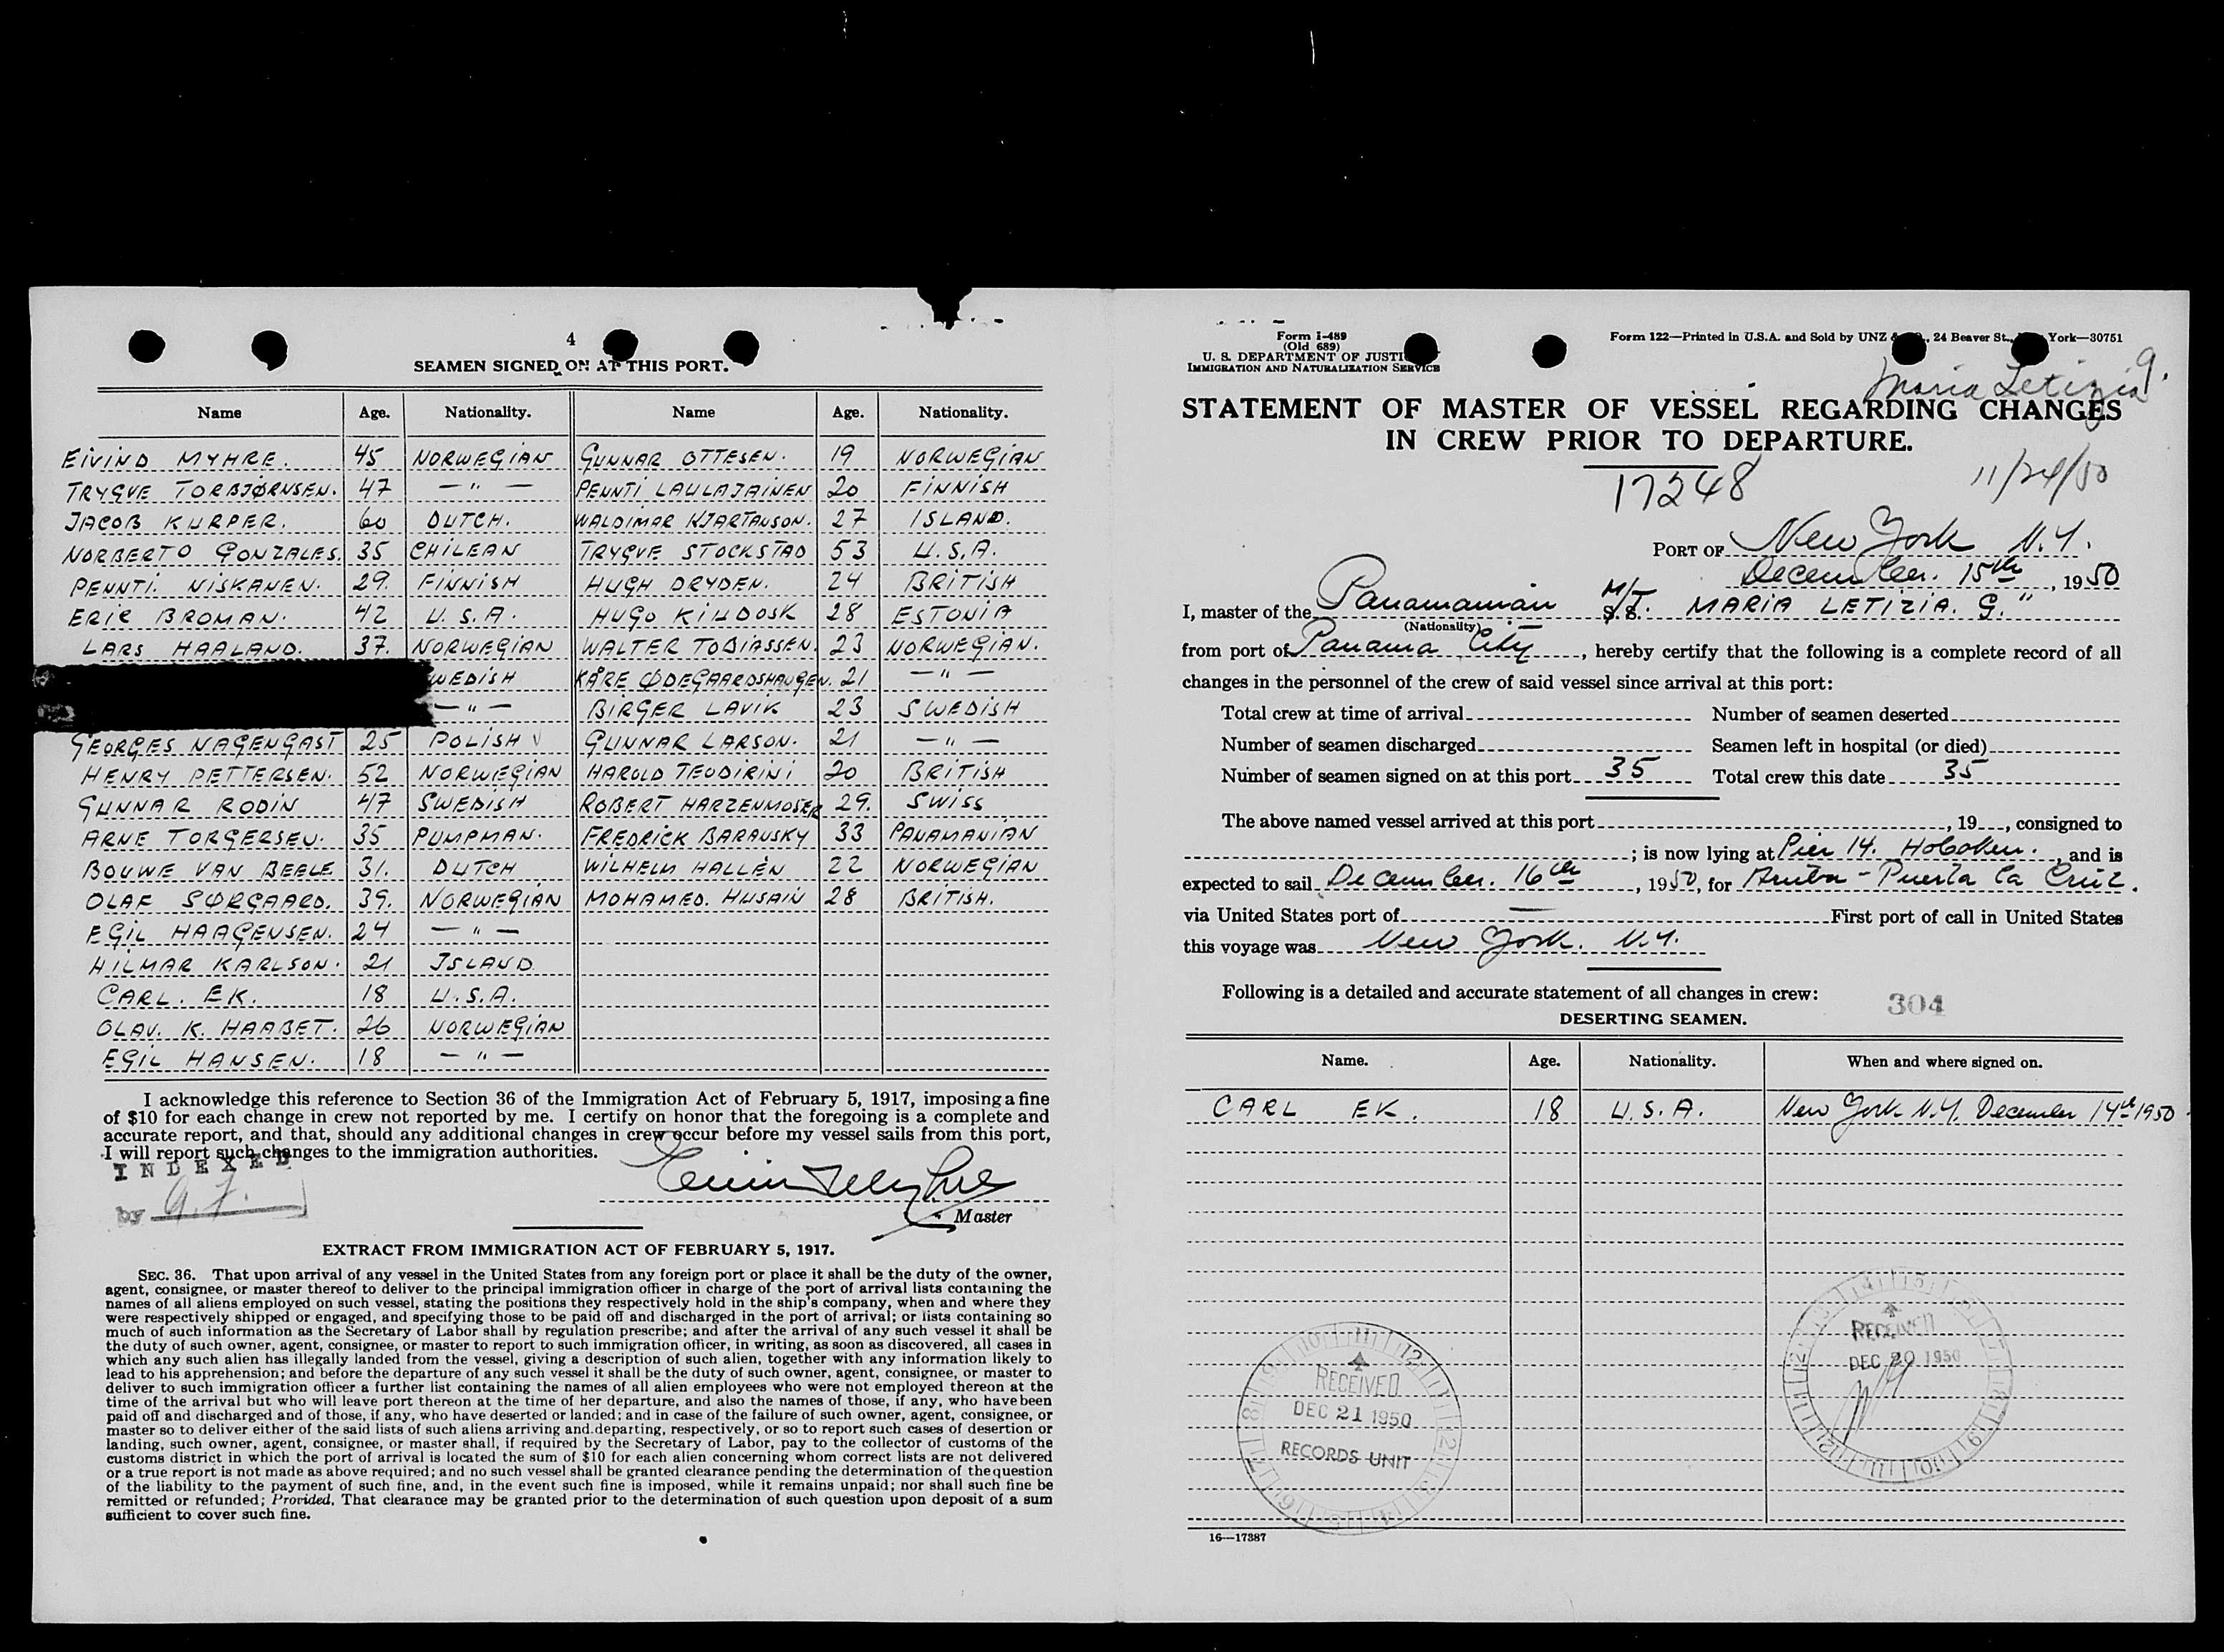 4
SEAMEN SIGNED ON AT THIS PORT.
Name Age. Nationality. Name Age. Nationality.
EIVIND MYHRE. 45 NORWEGIAN GUNNAR OTTESEN. 19 NORWEGIAN
TRYGVE TORBJØRNSEN. 47 — " — PENNTI LAULAJAINEN 20 FINNISH
JACOB KURPER. 60 DUTCH. WALDIMAR KJARTANSON. 27 ISLAND.
NORBERTO GONZALES. 35 CHILEAN TRYGVE STOCKSTAD 53 U.S.A.
PENNTI. NISKANEN. 29. FINNISH HUGH DRYDEN. 24 BRITISH
ERIC BROMAN. 42 U.S.A. HUGO KIUDOSK 28 ESTONIA
LARS HAALAND. 37. NORWEGIAN WALTER TOBIASSEN. 23 NORWEGIAN.
WEDISH KÅRE ØDEGAARDSHAUGEN. 21 — " —
— " — BIRGER LAVIK 23 SWEDISH
GEORGES NAGENGAST 25 POLISH GUNNAR LARSON. 21 — " —
HENRY PETTERSEN. 52 NORWEGIAN HAROLD TEUDIRINI 20 BRITISH
GUNNAR RODIN 47 SWEDISH ROBERT HARZENMOSER 29. SWISS
ARNE TORGERSEN. 35 PUMPMAN. FREDRICK BARAUSKY 33 PANAMANIAN
BOUWE VAN BEELE 31. DUTCH WILHELM HALLÈN 22 NORWEGIAN
OLAF SØRGAARD. 39. NORWEGIAN MOHAMED. HUSAIN 28 BRITISH.
EGIL HAAGENSEN. 24 — " —
HILMAR KARLSON. 21 ISLAND
CARL. EK. 18 U.S.A.
OLAV. K. HAABET. 26 NORWEGIAN
EGIL HANSEN. 18 — " —
I acknowledge this reference to Section 36 of the Immigration Act of February 5, 1917, imposing a fine
of $10 for each change in crew not reported by me. I certify on honor that the foregoing is a complete and
accurate report, and that, should any additional changes in crew occur before my vessel sails from this port,
I will report such changes to the immigration authorities.
INDEXED
by
Master
EXTRACT FROM IMMIGRATION ACT OF FEBRUARY 5, 1917.
SEC. 36. That upon arrival of any vessel in the United States from any foreign port or place it shall be the duty of the owner,
agent, consignee, or master thereof to deliver to the principal immigration officer in charge of the port of arrival lists containing the
names of all aliens employed on such vessel, stating the positions they respectively hold in the ship's company, when and where they
were respectively shipped or engaged, and specifying those to be paid off and discharged in the port of arrival; or lists containing so
much of such information as the Secretary of Labor shall by regulation prescribe; and after the arrival of any such vessel it shall be
the duty of such owner, agent, consignee, or master to report to such immigration officer, in writing, as soon as discovered, all cases in
which any such alien has illegally landed from the vessel, giving a description of such alien, together with any information likely to
lead to his apprehension; and before the departure of any such vessel it shall be the duty of such owner, agent, consignee, or master to
deliver to such immigration officer a further list containing the names of all alien employees who were not employed thereon at the
time of the arrival but who will leave port thereon at the time of her departure, and also the names of those, if any, who have been
paid off and discharged and of those, if any, who have deserted or landed; and in case of the failure of such owner, agent, consignee, or
master so to deliver either of the said lists of such aliens arriving and departing, respectively, or so to report such cases of desertion or
landing, such owner, agent, consignee, or master shall, if required by the Secretary of Labor, pay to the collector of customs of the
customs district in which the port of arrival is located the sum of $10 for each alien concerning whom correct lists are not delivered
or a true report is not made as above required; and no such vessel shall be granted clearance pending the determination of the question
of the liability to the payment of such fine, and, in the event such fine is imposed, while it remains unpaid; nor shall such fine be
remitted or refunded; Provided, That clearance may be granted prior to the determination of such question upon deposit of a sum
sufficient to cover such fine.
Form I-489
(Old 689)
U. S. DEPARTMENT OF JUSTI
IMMIGRATION AND NATURALIZATION SERVICE
Form 122—Printed in U.S.A. and Sold by UNZ &, 24 Beaver St., York—30751
Maria Letizia G.
STATEMENT OF MASTER OF VESSEL REGARDING CHANGES
IN CREW PRIOR TO DEPARTURE.
17248 11/24/50
PORT OF New York N.Y.
December. 15th, 1950
I, master of the Panamanian M/T. S.S. MARIA LETIZIA. G."
(Nationality)
from port of Panama City, hereby certify that the following is a complete record of all
changes in the personnel of the crew of said vessel since arrival at this port:
Total crew at time of arrival Number of seamen deserted
Number of seamen discharged Seamen left in hospital (or died)
Number of seamen signed on at this port 35 Total crew this date 35
The above named vessel arrived at this port , 19 , consigned to
; is now lying at Pier 14. Hoboken. and is
expected to sail December. 16th, 1950, for Aruba - Puerta La Cruz.
via United States port of — First port of call in United States
this voyage was New York. N.Y.
Following is a detailed and accurate statement of all changes in crew:
304
DESERTING SEAMEN.
Name. Age. Nationality. When and where signed on.
CARL EK. 18 U.S.A. New York N.Y. December 14th 1950
RECEIVED
DEC 21 1950
RECORDS UNIT
RECEIVED
DEC 20 1950
16—17387